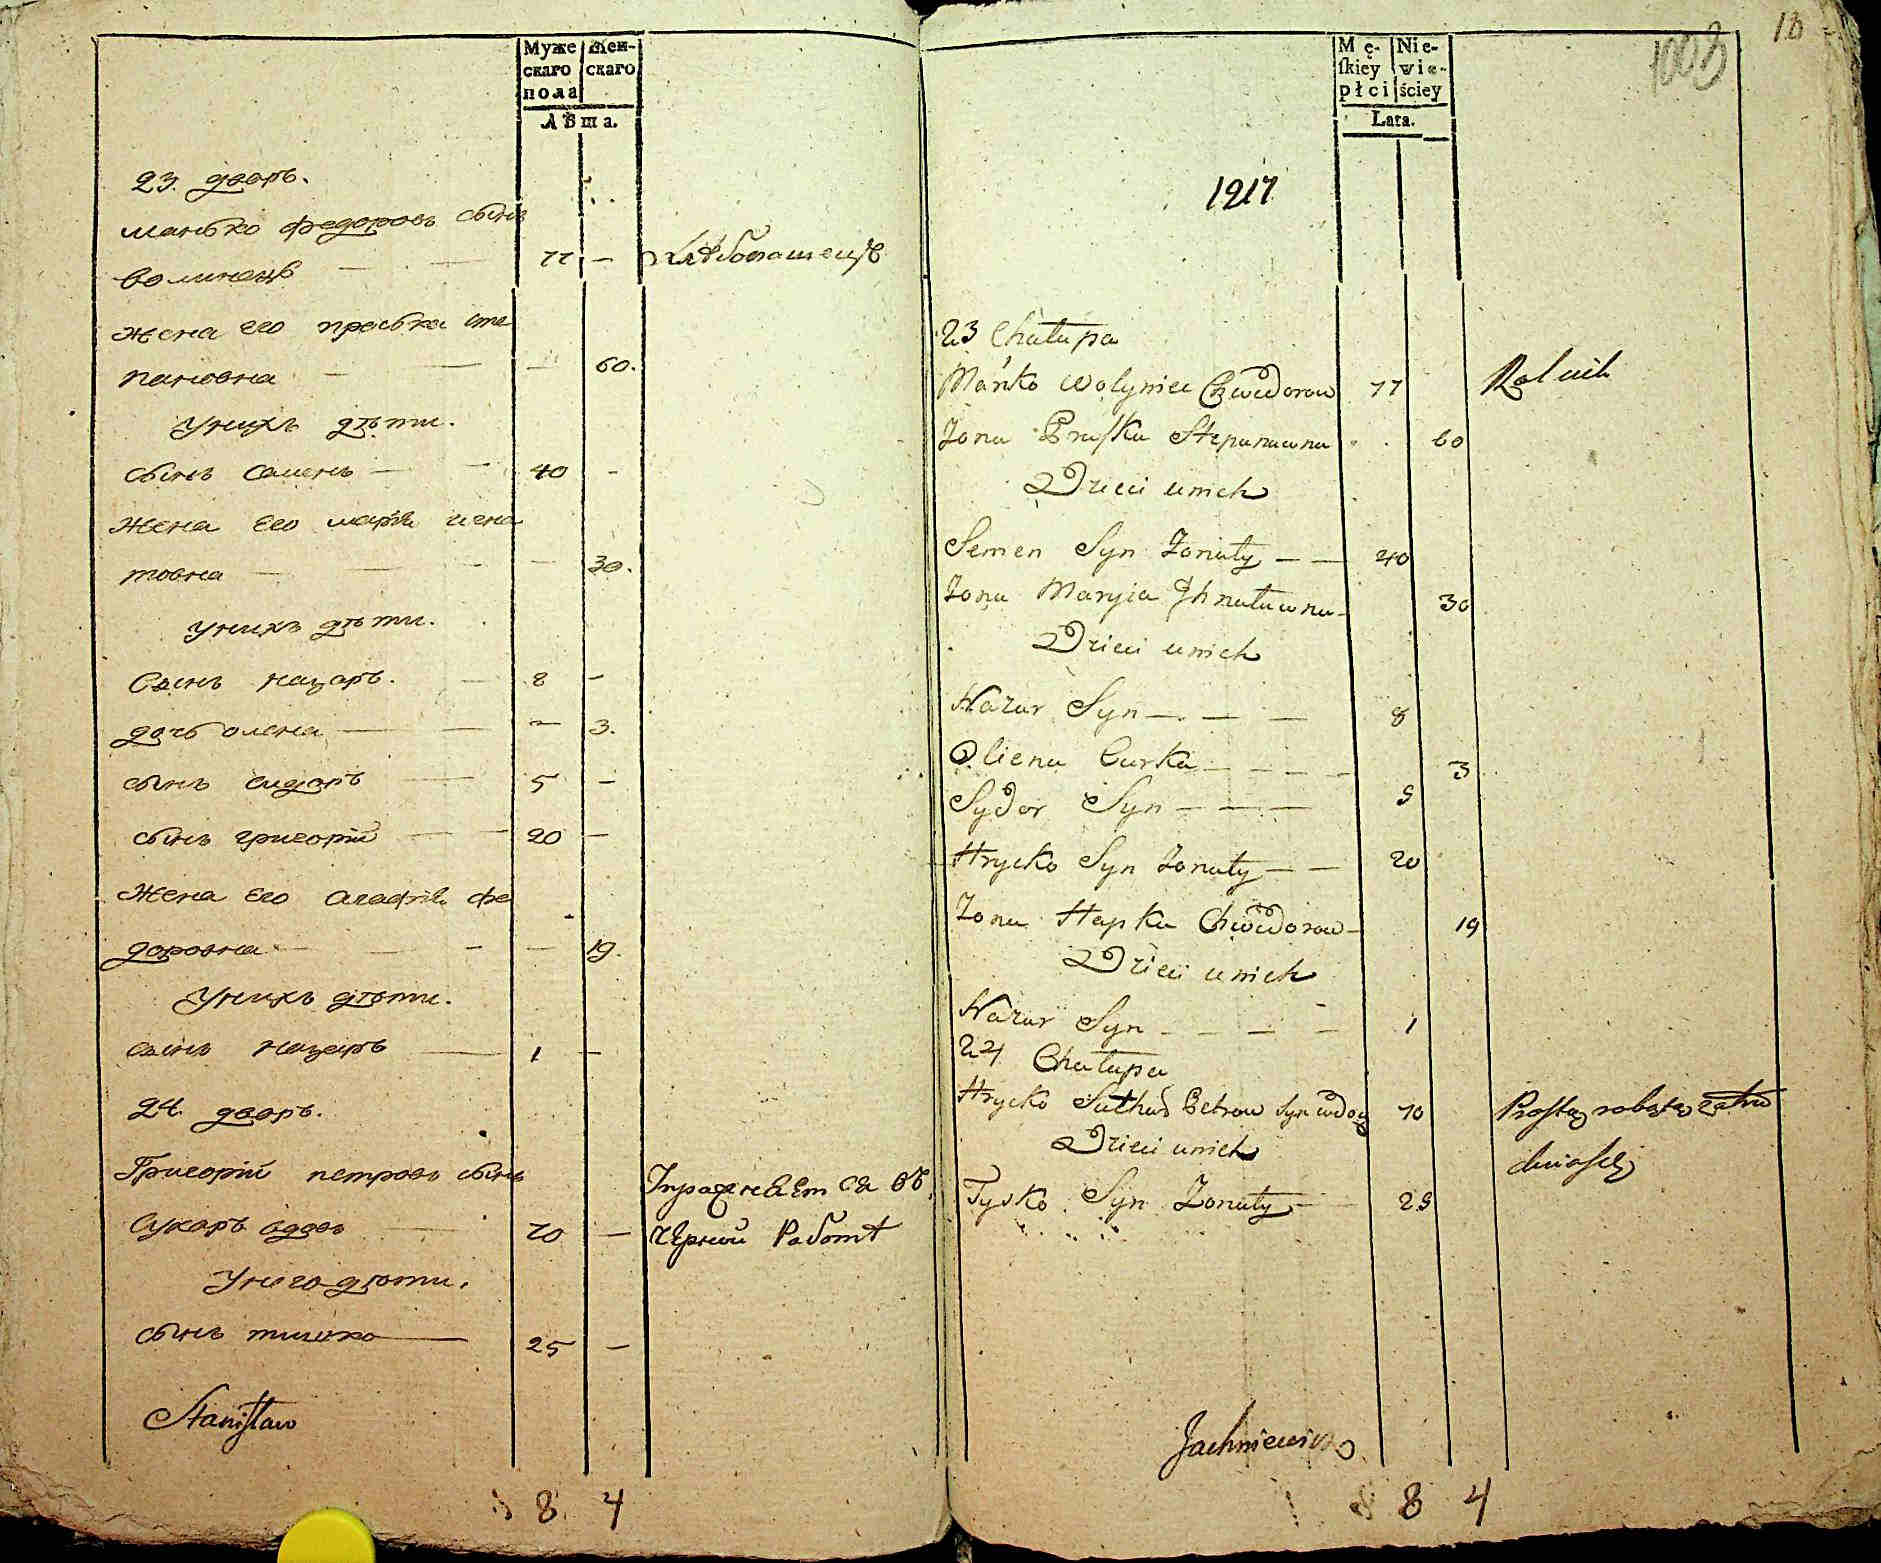 Муже
скаго
пола
Жен-
скаго
Лѣта.
23. дворъ.
манько федоровъ сынъ
волинецъ — — 77 — хлѣбопашецъ
жена его праська сте
пановна — — — 60.
Унихъ дѣти.
сынъ семенъ — — 40 -
жена его марія игна
товна — — — 30.
унихъ дѣти.
Сынъ назаръ. — 8 -
дочь олена — — — 3.
сынъ сидоръ — 5 -
сынъ григорій — — 20 —
Жена его агафія фе
доровна — — — — 19.
Унихъ дѣти.
сынъ назаръ — 1 —
24. дворъ.
Григорій петровъ сынъ
сухаръ вдовъ — 70 —
Упражняется въ
черной работѣ
Унего дѣти.
сынъ тишко — 25 —
Stanisław
8 4
18
1003
Mę-
skiey
płci
Nie-
wie-
ściey
Lata.
1217
23 Chałupa
Mańko Wołyniec Chwedorow 77 Rolnik
Zona Praska Stepanowna 60
Dzieci unich
Semen Syn Zonaty — — 40
Zona Maryia Ihnatowna - 30
Dzieci unich
Nazar Syn — — — 8
Oliena Curka — — — — 3
Sydor Syn — — — 5
Hrycko Syn Zonaty — — 20
Zona Hapka Chwedorow — 19
Dzieci unich
Nazar Syn — — — — 1
24 Chałupa
Hrycko Petrow Syn wdowy 70 Prostą robotą
Dzieci unich
Tysko Syn Zonaty — 25
Jachniewicz
8 4